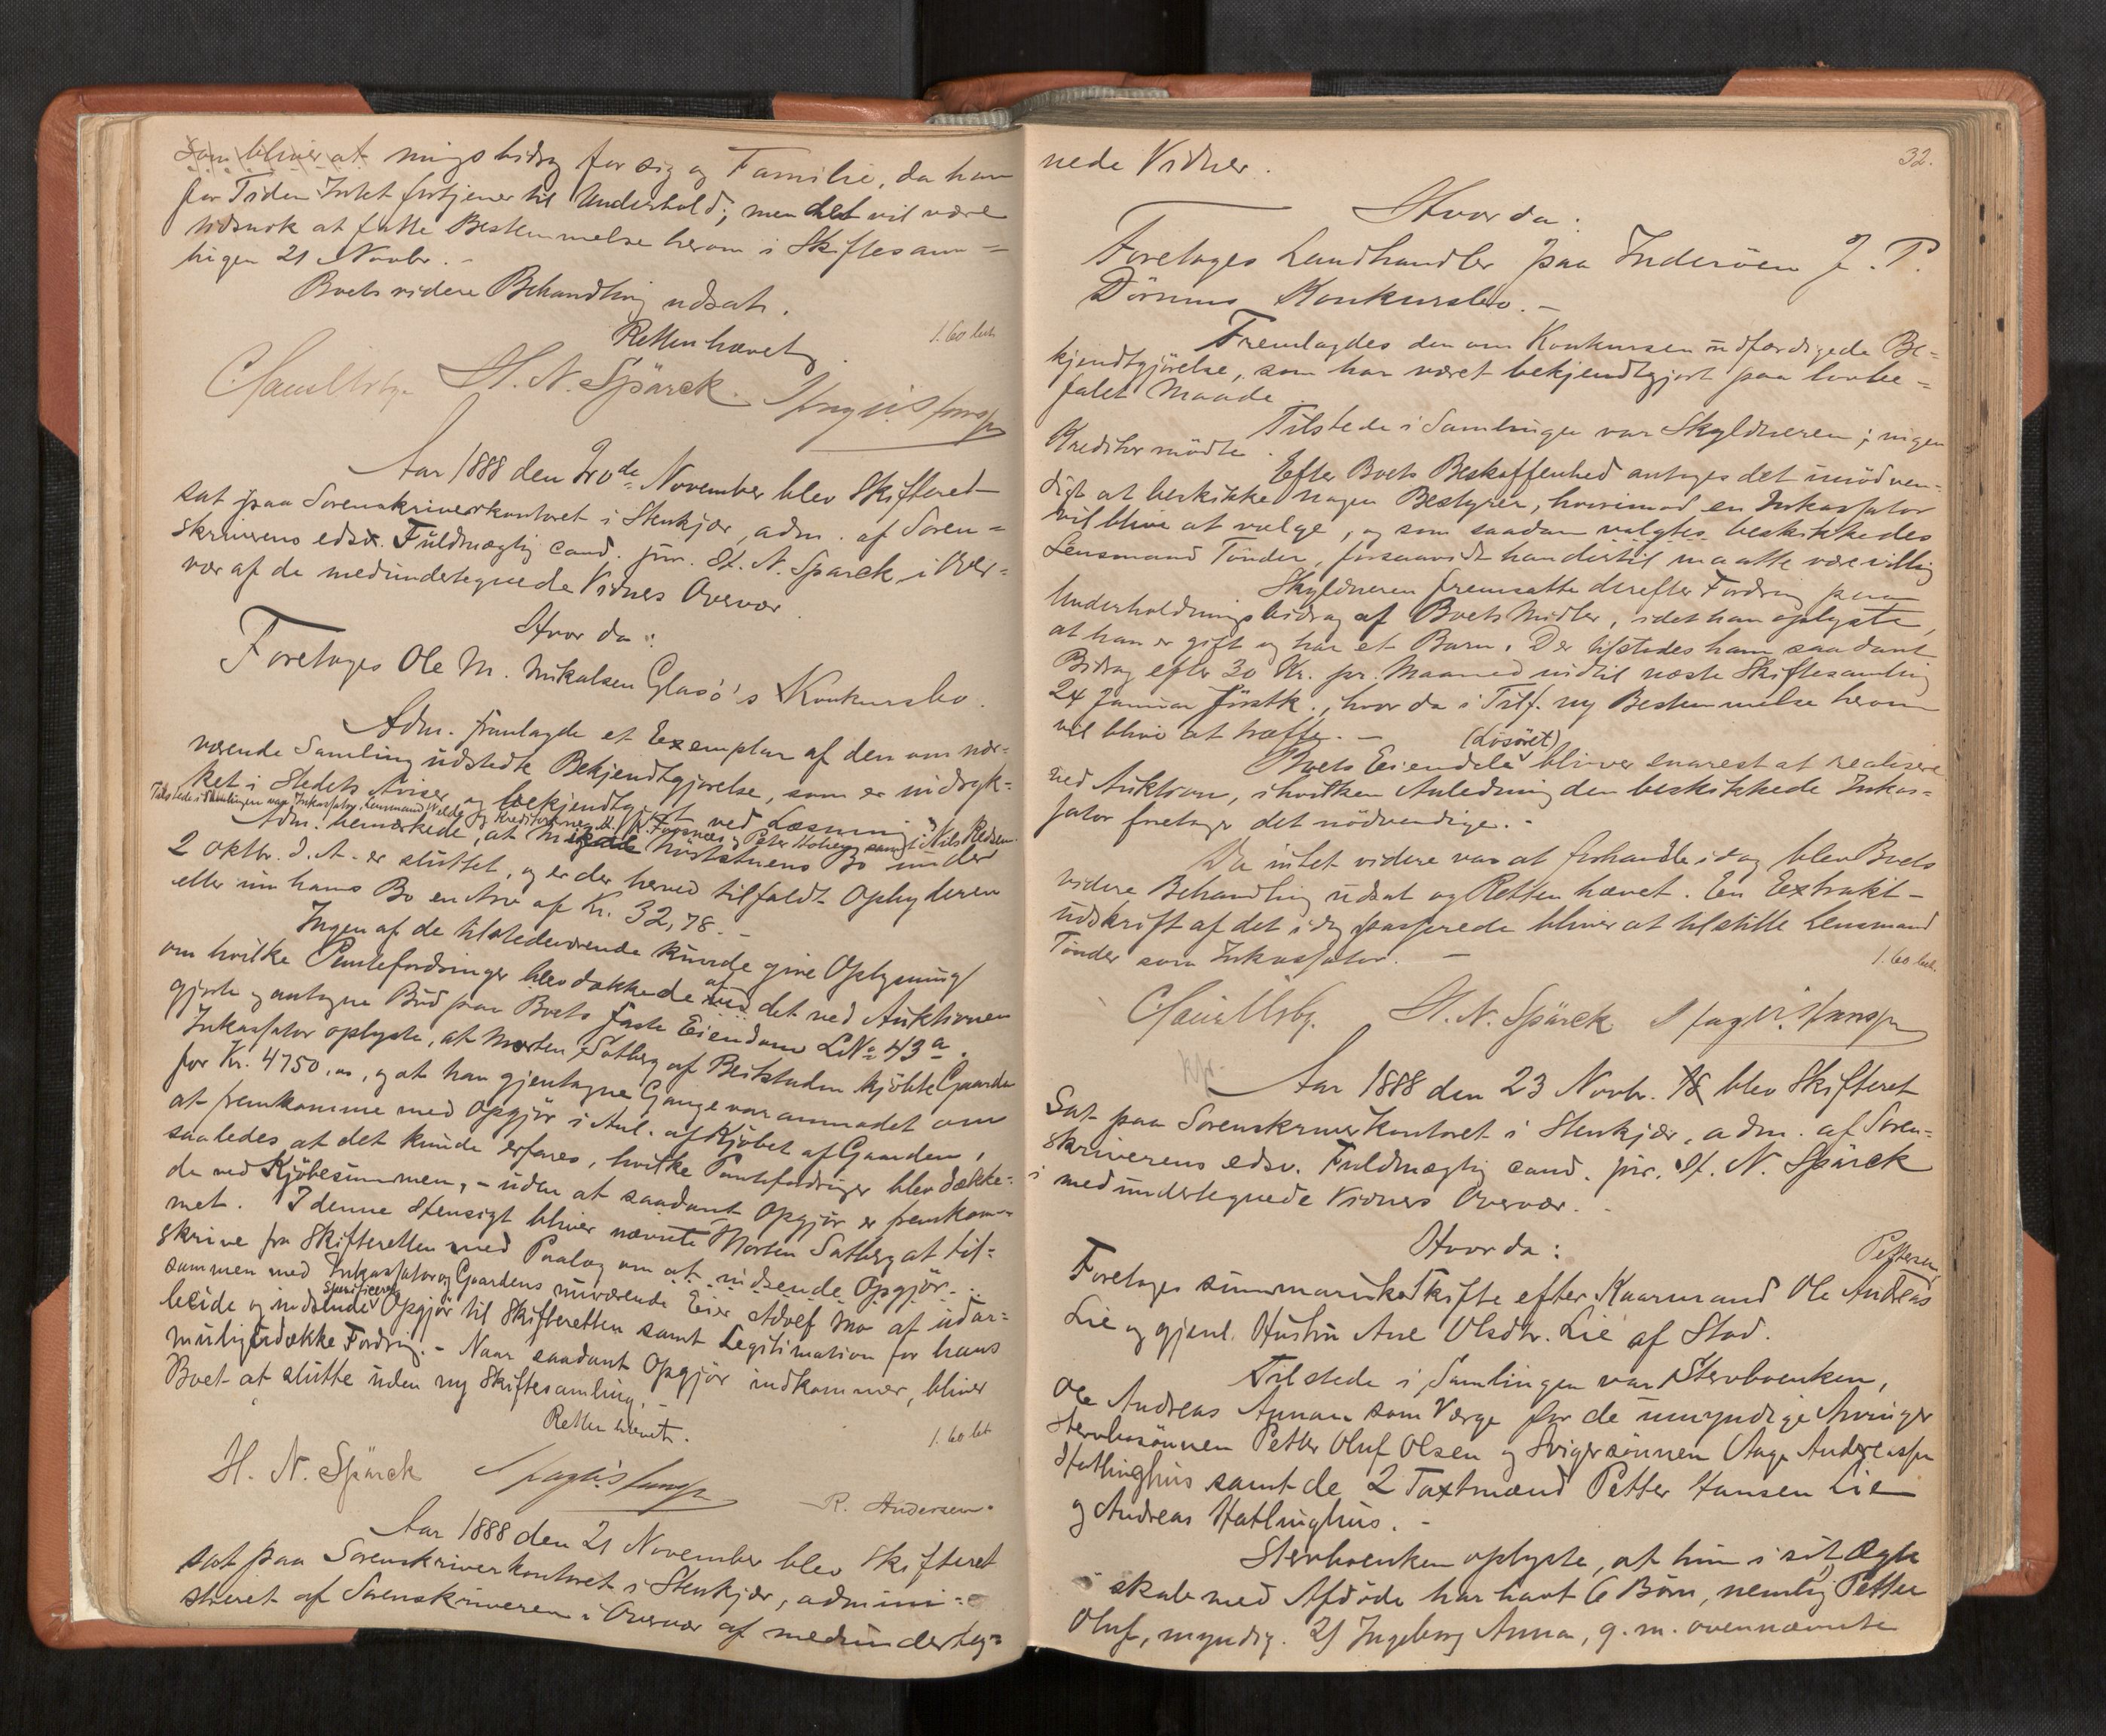 som bliver at ningsbidrag for sig og Familie, da han
for Tiden Intet fortjener til Underhold; men det vil være
tidsnok at fatte Bestemmelse herom i Skiftesam=
lingen 21 Novbr. -
Boets videre Behandling udsat.
Retten hævet
1.60 bet.
H. N. Spärck
Aar 1888 den 20de November blev Skifteret
sat paa Sorenskriverkontoret i Stenkjær, adm. af Soren=
skriverens edsv. Fuldmægtig cand. jur. H. N. Sparck i Over=
vær af de medundertegnede Vidners Overvær.
Hvor da:
Foretoges Ole M. Mikalsen Glasö's Konkursbo.
Adm. fremlagde et Exemplar af den om nær=
værende Samling udstedte Bekjendtgjørelse, som er indryk=
ket i Stedets Aviser og bekjendtgjort ved Læsning
Tilstede i Samlingen var Inkassator, Lensmand Welde og Kreditorerne Fagsnæs, Peter samt Nils
Adm. bemærkede, at Bo under
2 Oktbr. d. A. er sluttet, og er der herved tilfaldt Opbyderen
eller nu hans Bo en Arv af Kr. 32,78. -
Ingen af de tilstedeværende kunde give Oplysning
om hvilke Pantefordringer blev dækkede af det ved Auktionen
gjorte og antagne Bud paa Boets faste Eiendom LNo 43a.
Inkassator oplyste, at Morten Satberg af Beitstaden kjöbte Gaarden
for Kr. 4750,00, og at han gjentagne Gange var anmodet om
at fremkomme med Opgjör i Anl. af Kjöbet af Gaarden,
saaledes at det kunde erfares, hvilke Pantefordringer blev dække=
de ved Kjöbesummen, - uden at saadant Opgjör er fremkom=
met. I denne Hensigt bliver nævnte Morten Satberg at til=
skrive fra Skifteretten med Paalæg om at indsende Opgjör -
sammen med Inkassator og Gaardens nuværende Eier Adolf Mo at udar=
beide og indsende specificeret Opgjör til Skifteretten samt Legitimation for hans
muligt udække Fordring. - Naar saadant Opgjör indkommer, bliver
Boet at slutte uden ny Skiftesamling. -
Retten hævet.
1.60 bet.
H. N. Spärck
R. Andersen.
Aar 1888 den 21 November blev Skifteret
sat paa Sorenskriverkontoret i Stenkjær, admini=
streret af Sorenskriveren i Overvær af medunderteg=
32.
nede Vidner.
Hvor da:
Foretoges Landhandler paa Inderöen J. P.
Dörums Konkursbo. -
Fremlagdes den om Konkursen udfærdigede Be=
kjendtgjörelse, som har været bekjendtgjort paa lovbe=
falet Maade.
Tilstede i Samlingen var Skyldneren; ingen
Kreditor mödte.
Efter Boets Beskaffenhed antoges det unödven=
digt at beskikke nogen Bestyrer, hvorimod en Inkassator
vil blive at vælge, og som saadan valgtes beskikkedes
Lensmand Tönder, forsaavidt han dertil maatte være villig
Skyldneren fremsatte derefter Fordring paa
Underholdningsbidrag af Boets Midler, idet han oplyste,
at han er gift og har et Barn. Der tilstedes ham saadant
Bidrag efter 30 Kr. pr. Maaned indtil næste Skiftesamling
24 Januar förstk., hvor da i Tilf. ny Bestemmelse herom
vil blive at træffe. -
(Lösöret)
Boets Eiendele bliver snarest at realisere
ved Auktion, i hvilken Anledning den beskikkede Inkas=
sator foretager det nödvendige. -
Da intet videre var at forhandle idag blev Boets
videre Behandling udsat og Retten hævet. En Extrakt-
udskrift af det idag passerede bliver at tilstille Lensmand
Tönder som Inkassator. -
1.60 bet.
H. N. Spärck
Aar 1888 den 23 Novbr. 18 blev Skifteret
sat paa Sorenskriverkontoret i Stenkjær, adm. af Soren=
skriverens edsv. Fuldmægtig cand. jur. H. N. Spärck
i medundertegnede Vidners Overvær. -
Hvor da:
Pettersen
Foretoges summarisk Skifte efter Kaarmand Ole Andreas
Lie og gjenl. Hustru Ane Olsdtr. Lie af Stod.
Tilstede i Samlingen var Stervboenken,
Ole Andreas Annan som Værge for de umyndige Arvinger
Stervbosönnen Petter Oluf Olsen og Svigersönnen Aage Andreassen
Hatlinghus samt de 2 Taxtmænd Petter Hansen Lie
og Andreas Hatlinghus. -
Stervboenken oplyste, at hun i sit Ægte
skab med Afdöde har havt 6 Börn, nemlig Petter
Oluf, myndig. 2) Ingeborg Anna, g. m. ovennævnte